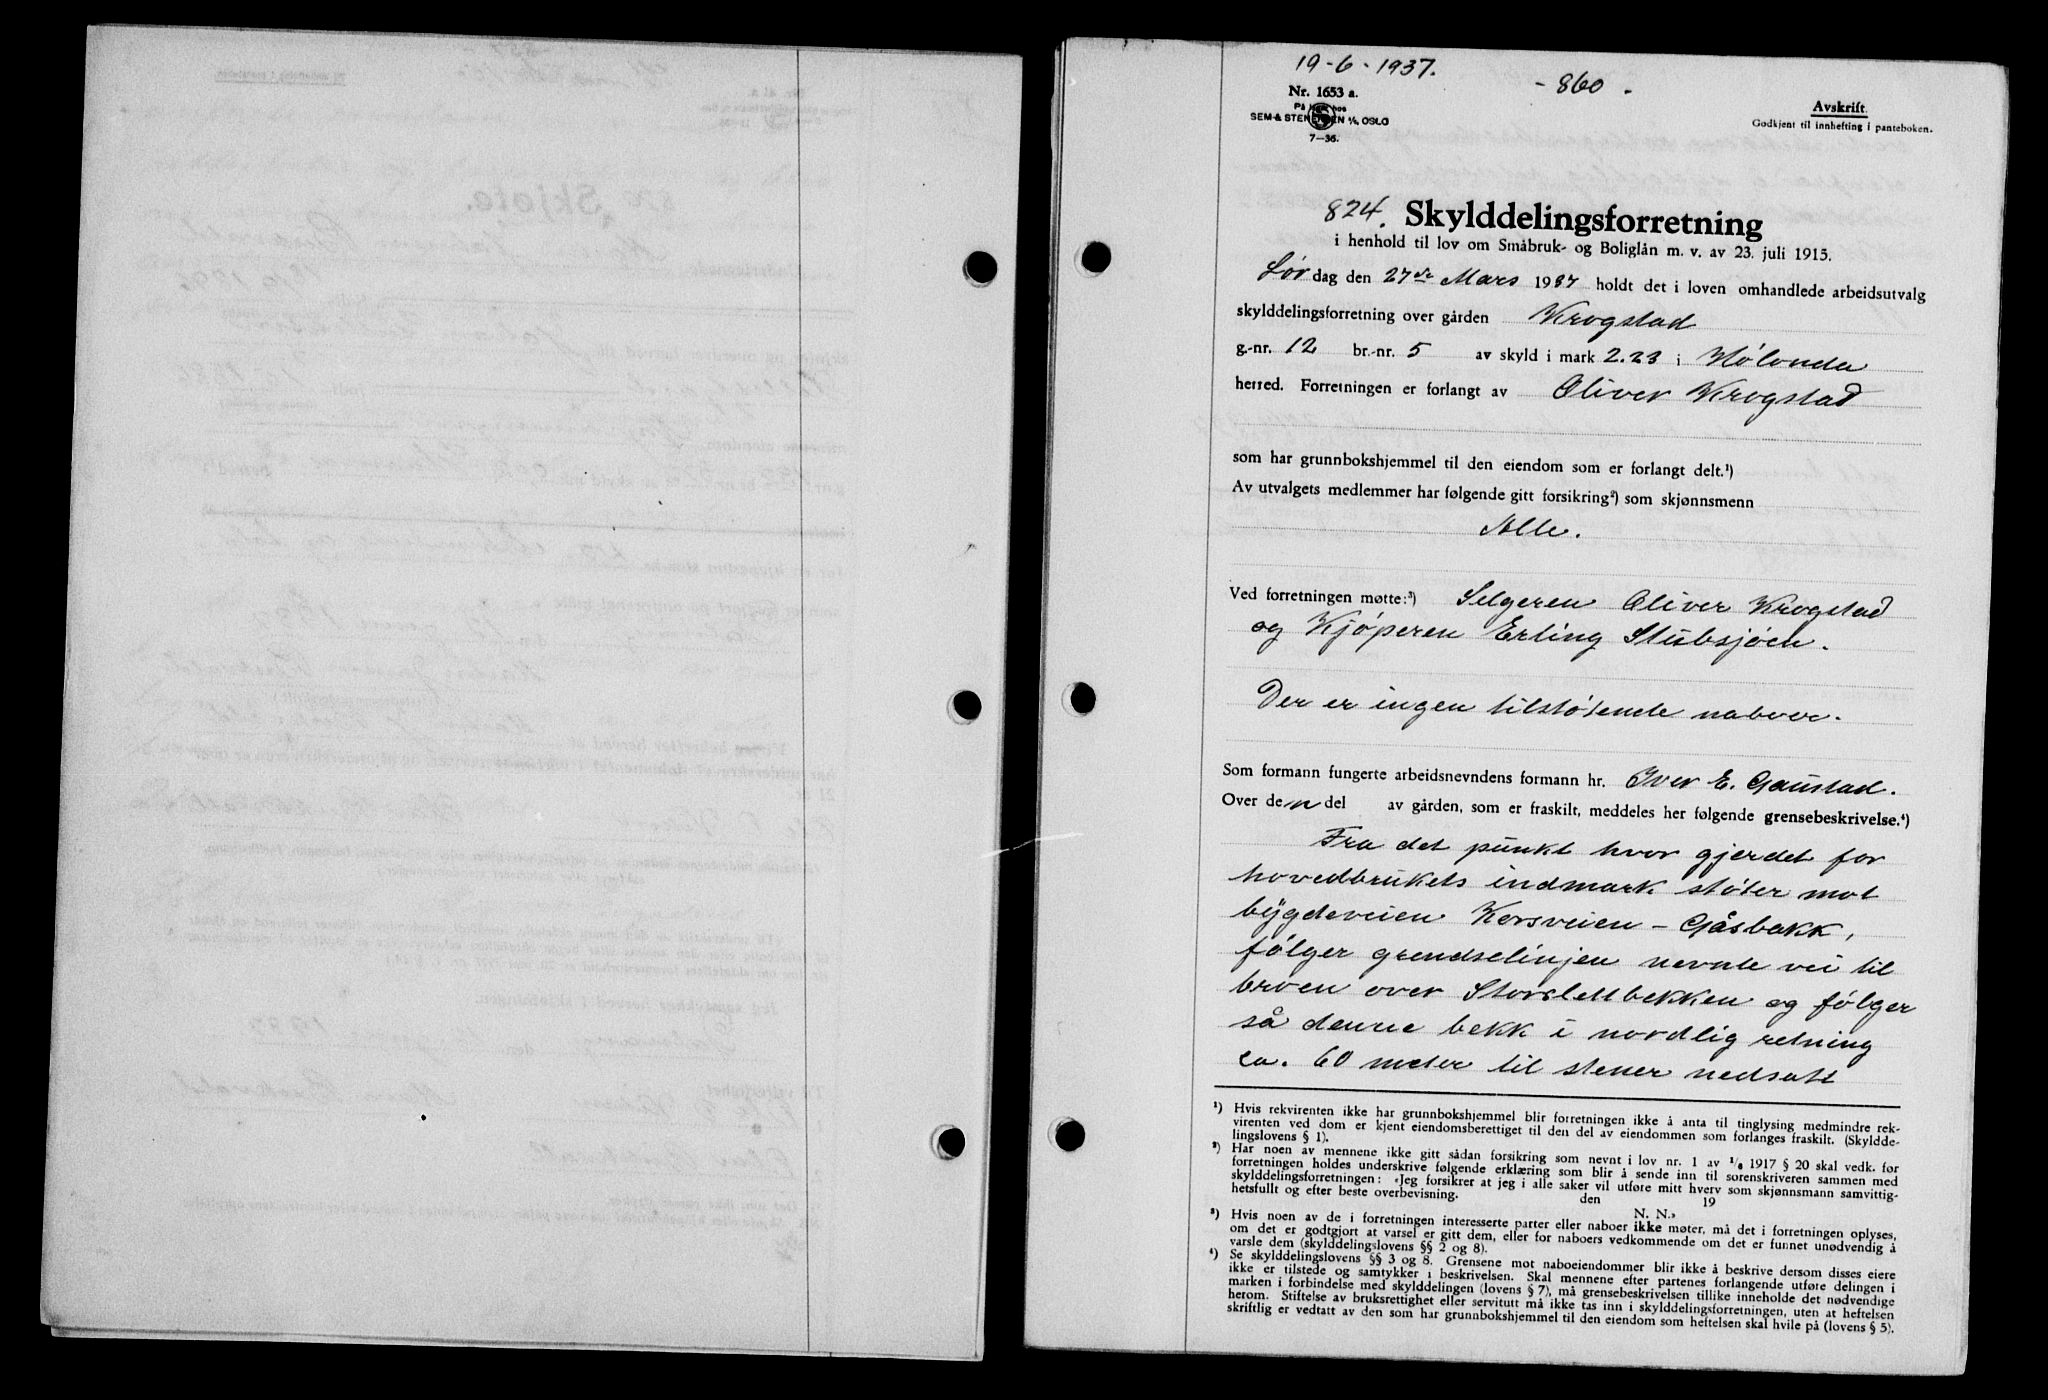 19-6-1937.
- 860 -
Nr. 1653 a.
SEM & STENERSEN A/S, OSLO
7—36.
Avskrift.
Godkjent til innhefting i panteboken.
824. Skylddelingsforretning
i henhold til lov om Småbruk- og Boliglån m. v. av 23. juli 1915.
Lørdag den 27de Mars 1937 holdt det i loven omhandlede arbeidsutvalg
skylddelingsforretning over gården Krogstad
g.-nr. 12 br.-nr. 5 av skyld i mark 2.23 i Hølonda
herred. Forretningen er forlangt av Oliver Krogstad
som har grunnbokshjemmel til den eiendom som er forlangt delt.¹)
Av utvalgets medlemmer har følgende gitt forsikring²) som skjønnsmenn
Alle.
Ved forretningen møtte:³) Selgeren Oliver Krogstad
og Kjøperen Erling Stubsjøen.
Der er ingen tilstøtende naboer.
Som formann fungerte arbeidsnevndens formann hr. Iver E. Gaustad.
Over den del av gården, som er fraskilt, meddeles her følgende grensebeskrivelse.⁴)
Fra det punkt hvor gjerdet for
hovedbrukets indmark støter mot
bygdeveien Korsveien - Gåsbakk,
følger grendselinjen nevnte vei til
broen over Storslettbekken og følger
så denne bekk i nordlig retning
ca. 60 meter til stener nedsatt
¹) Hvis rekvirenten ikke har grunnbokshjemmel blir forretningen ikke å anta til tinglysing medmindre rek-
virenten ved dom er kjent eiendomsberettiget til den del av eiendommen som forlanges fraskilt. (Skyldde-
lingslovens § 1).
²) Har noen av mennene ikke gitt sådan forsikring som nevnt i lov nr. 1 av 1/6 1917 § 20 skal vedk. før
forretningen holdes underskrive følgende erklæring som blir å sende inn til sorenskriveren sammen med
skylddelingsforretningen: «Jeg forsikrer at jeg i alle saker vil utføre mitt hverv som skjønnsmann samvittig-
hetsfullt og efter beste overbevisning. den 19
N. N.»
³) Hvis noen av de i forretningen interesserte parter eller naboer ikke møter, må det i forretningen oplyses,
om det er godtgjort at varsel er gitt dem, eller for naboers vedkommende om det er funnet unødvendig å
varsle dem (skylddelingslovens §§ 2 og 8).
⁴) Se skylddelingslovens §§ 3 og 8. Grensene mot naboeiendommer blir ikke å beskrive dersom disses eiere
ikke er tilstede og samtykker i beskrivelsen. Skal mennene efter partenes forlangende utføre delingen i
marken i forbindelse med skylddelingen (lovens § 7), må grensebeskrivelsen tillike inneholde det nødvendige
herom. Stiftelse av bruksrettighet eller servitutt må ikke tas inn i skylddelingsforretningen, uten at heftelsen
skriftlig er vedtatt av den som har grunnbokshjemmel til den eiendom som heftelsen skal hvile på (lovens § 5).